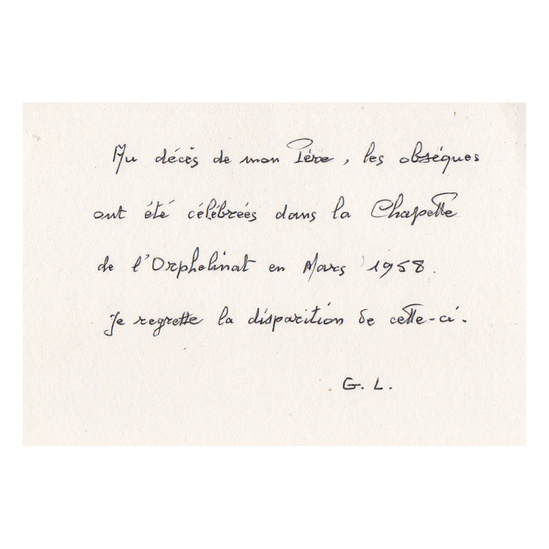 Au décès de mon Père, les obsèques
ont été célébrées dans la Chapelle
de l'Orphelinat en Mars 1958.
Je regrette la disparition de celle-ci.
G. L.